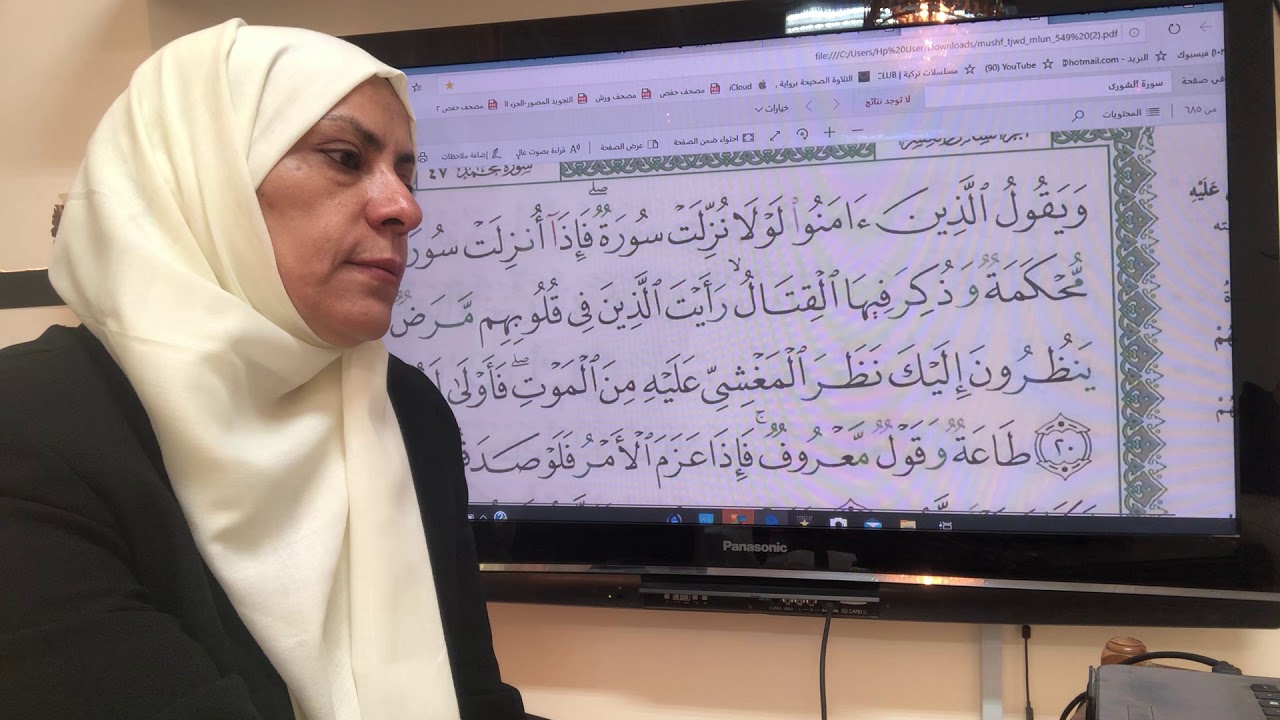 file:///C:/Users/Hp%20User/Downloads/mushf_tjwd_mlun_549%20(2).pdf
فيسبوك البريد - hotmail.com (90) YouTube مسلسلات تركية | CLUB التلاوة الصحيحة برواية iCloud مصحف حفص مصحف ورش التجويد المصور-الجزء اا مصحف حفص ٢
في صفحة سورة الشورى لا توجد نتائج خيارات
من ٦٨٥ المحتويات
احتواء ضمن الصفحة عرض الصفحة قراءة بصوت عالٍ إضافة ملاحظات
سورة محمد ٤٧
وَيَقُولُ ٱلَّذِينَ ءَامَنُواْ لَوْلَا نُزِّلَتْ سُورَةٌ ۖ فَإِذَآ أُنزِلَتْ سُورَ
مُّحْكَمَةٌ وَذُكِرَ فِيهَا ٱلْقِتَالُ ۙ رَأَيْتَ ٱلَّذِينَ فِى قُلُوبِهِم مَّرَضٌ
يَنظُرُونَ إِلَيْكَ نَظَرَ ٱلْمَغْشِىِّ عَلَيْهِ مِنَ ٱلْمَوْتِ ۖ فَأَوْلَىٰ
٢٠ طَاعَةٌ وَقَوْلٌ مَّعْرُوفٌ ۚ فَإِذَا عَزَمَ ٱلْأَمْرُ فَلَوْ صَدَقُ
عَلَيْهِ
Panasonic
SD CARD